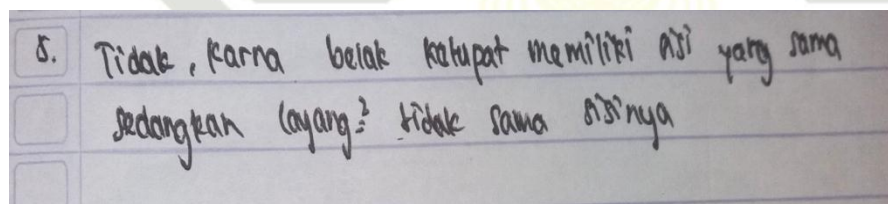 5. Tidak, karna belak ketupat memiliki sisi yang sama
sedangkan layang² tidak sama sisinya